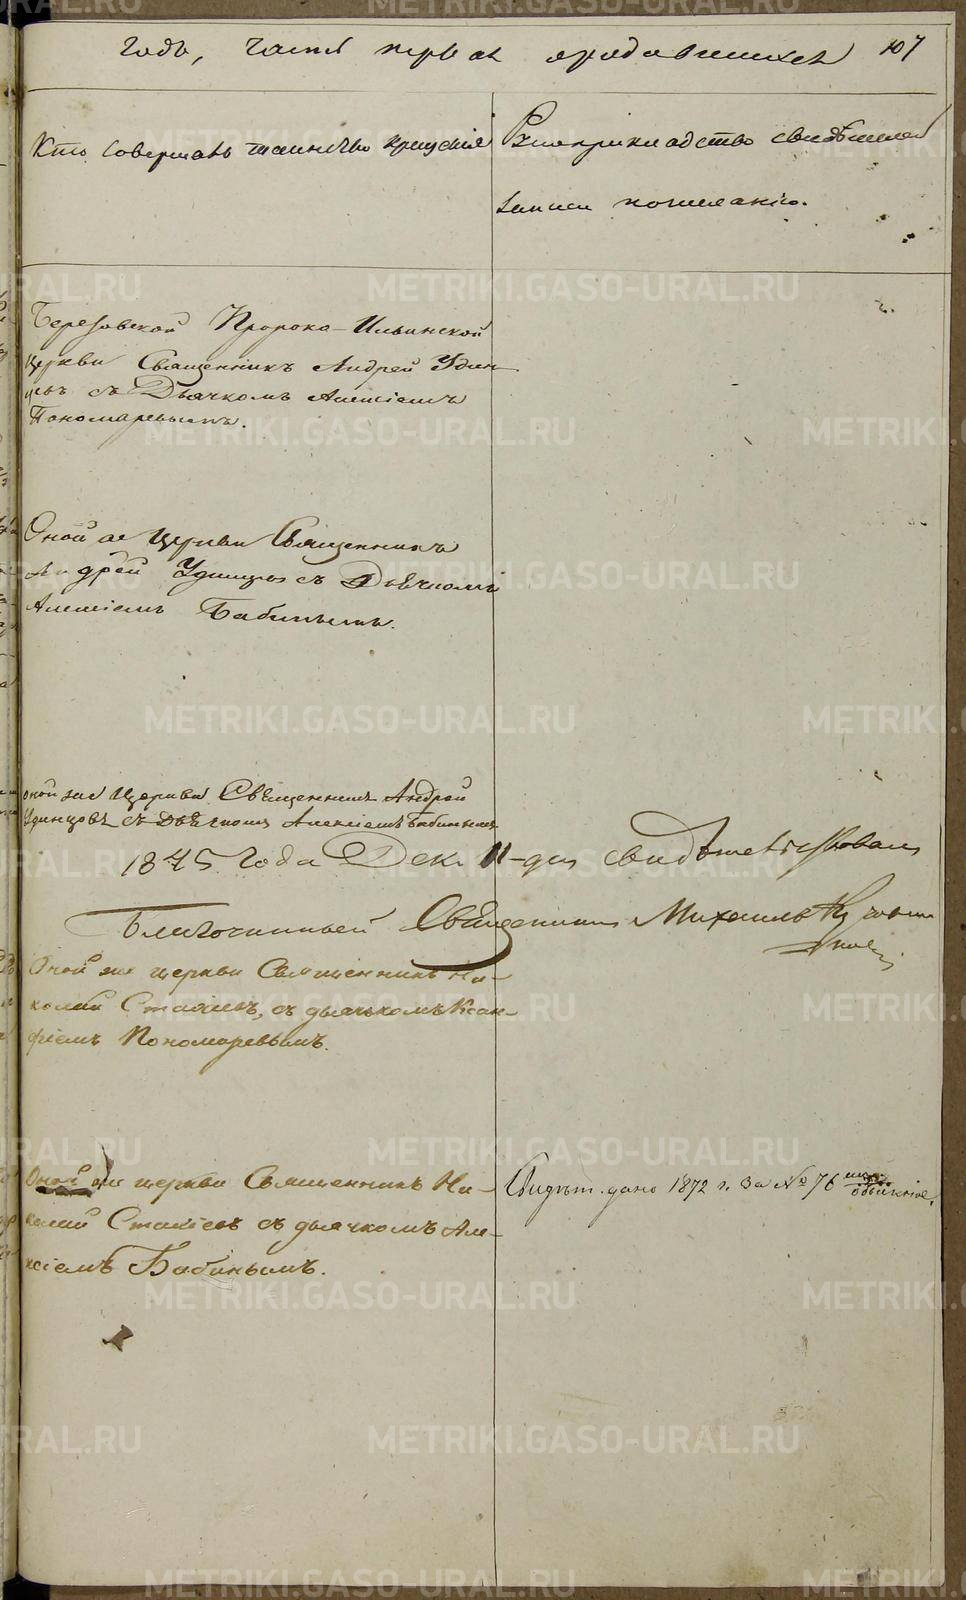 годъ, часть первая о родившихся 107
Кто совершалъ таинство крещенія
Рукоприкладство свидѣтелей
записи по желанію.
Березовской Пророко-Ильинской
церкви Священникъ Андрей Удин-
цовъ съ Дьячкомъ Алексіемъ
Пономаревымъ.
Оной же церкви Священникъ
Андрей Удинцовъ съ Дьячкомъ
Алексіемъ Бабинымъ.
оной же Церкви Священникъ Андрей
Удинцовъ съ Дьячкомъ Алексіемъ Бабинымъ
1845 года Дек. 11-дня свидѣтельствовалъ
Благочинный Священникъ Михаилъ
Оной же церкви Священникъ Ни-
колай Стахіевъ, съ дьячькомъ Ксан-
фіемъ Пономаревымъ.
Оной же церкви Священникъ Ни-
колай Стахіевъ съ дьячкомъ Але-
ксіемъ Бабинымъ.
Свидѣт. дано 1872 г. За № 76